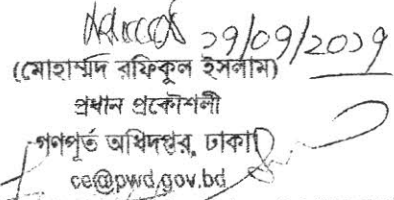 ২৭/০৭/২০১৭
(মোহাম্মদ রফিকুল ইসলাম)
প্রধান প্রকৌশলী
গণপূর্ত অধিদপ্তর, ঢাকা।
ce@pwd.gov.bd